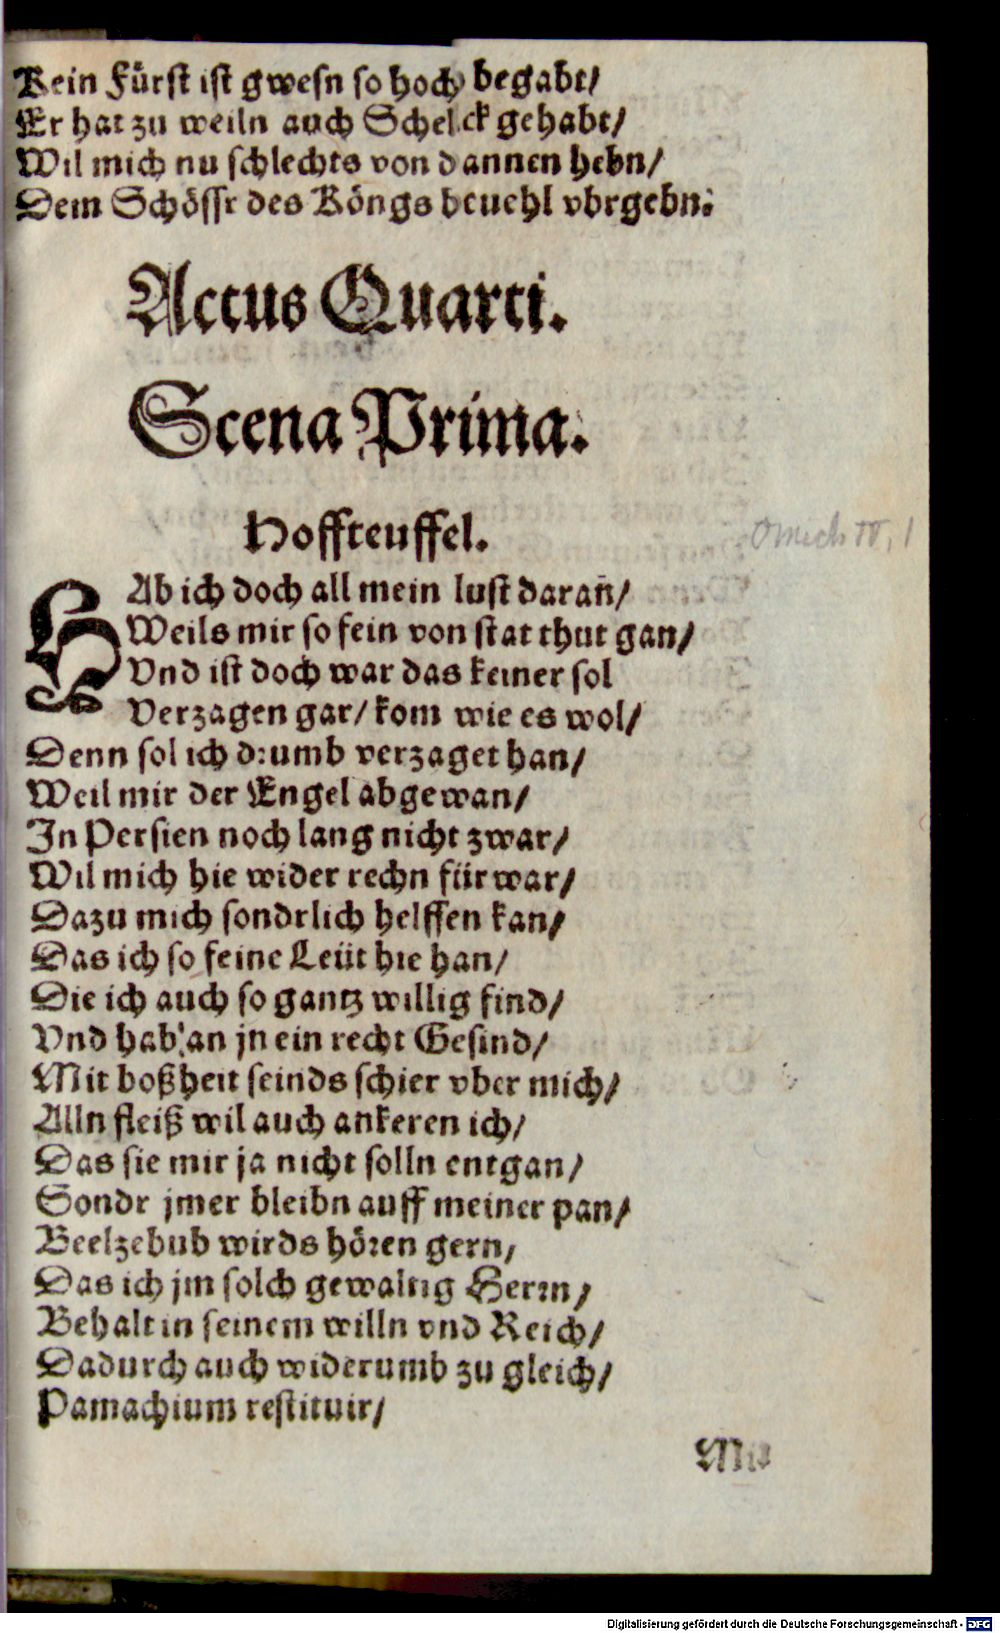 Kein Fürst ist gwesn so hoch begabt/
Er hat zu weiln auch Schelck gehabt/
Wil mich nu schlechts von dannen hebn/
Dem Schössr des Köngs beuehl vbrgebn.
Actus Quarti.
Scena Prima.
Hoffteuffel.
Omich IV, 1
HAb ich doch all mein lust darañ/
Weils mir so fein von stat thut gan/
Vnd ist doch war das keiner sol
Verzagen gar/ kom wie es wol/
Denn sol ich drumb verzaget han/
Weil mir der Engel abgewan/
In Persien noch lang nicht zwar/
Wil mich hie wider rechn fürwar/
Dazu mich sondrlich helffen kan/
Das ich so feine Leüt hie han/
Die ich auch so gantz willig find/
Vnd hab an jn ein recht Gesind/
Mit boßheit seinds schier vber mich/
Alln fleiß wil auch ankeren ich/
Das sie mir ja nicht solln entgan/
Sondr jmer bleibn auff meiner pan/
Beelzebub wirds hören gern/
Das ich jm solch gewaltig Herrn/
Behalt in seinem willn vnd Reich/
Dadurch auch widerumb zu gleich/
Pamachium restituir/
Mit
Digitalisierung gefördert durch die Deutsche Forschungsgemeinschaft - DFG